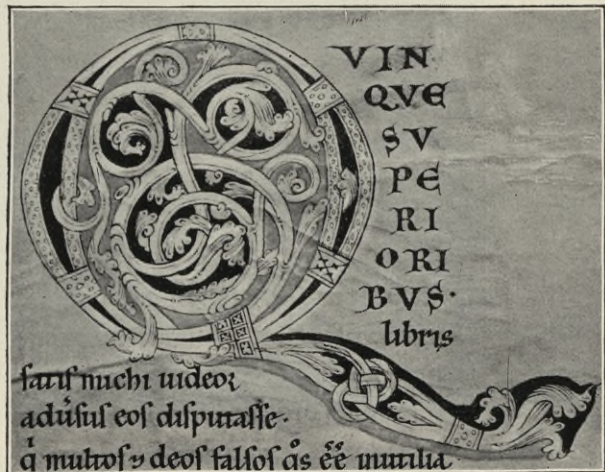 Q VIN
QVE
SV
PE
RI
ORI
BVS·
libris
satis michi uideor
adũsus eos disputasse·
qͥ multos ⁊ deos falsos q̊s eē̃ inutilia